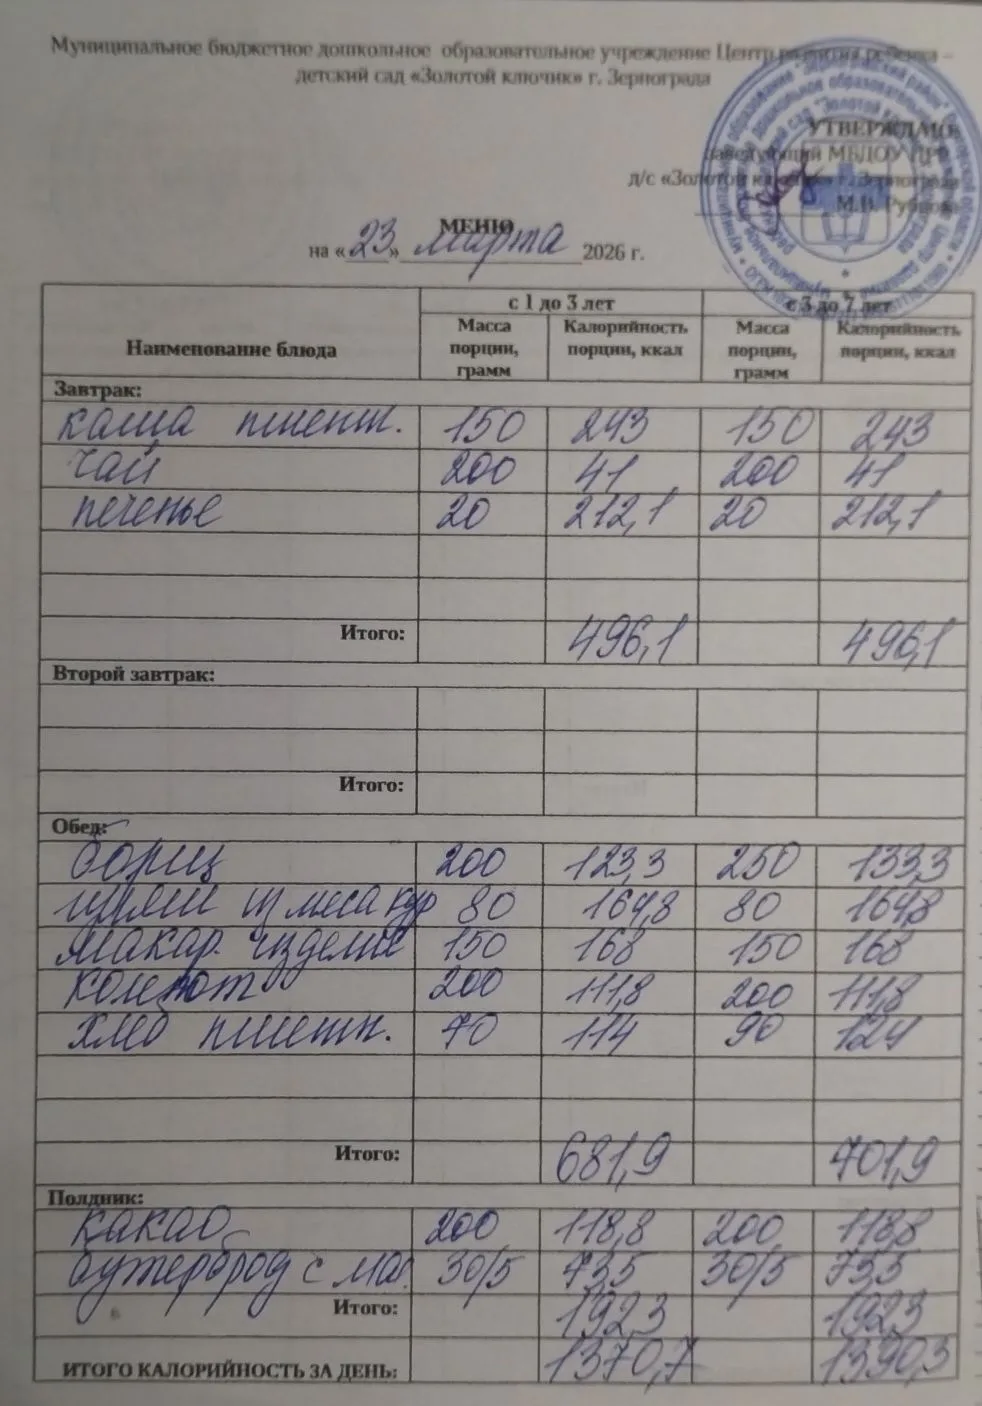 Муниципальное бюджетное дошкольное образовательное учреждение Центр развития ребенка –
детский сад «Золотой ключик» г. Зернограда
УТВЕРЖДАЮ
Заведующий МБДОУ ЦРР
д/с «Золотой ключик» г. Зернограда
М.В.
МЕНЮ
на «23» марта 2026 г.
Наименование блюда с 1 до 3 лет с 3 до 7 лет
Масса порции, грамм Калорийность порции, ккал Масса порции, грамм Калорийность порции, ккал
Завтрак:
каша пшенн. 150 243 150 243
чай 200 41 200 41
печенье 20 212,1 20 212,1
Итого: 496,1 496,1
Второй завтрак:
Итого:
Обед:
борщ 200 123,3 250 133,3
гуляш из мяса кур 80 164,8 80 164,8
макар. изделия 150 168 150 168
компот 200 111,8 200 111,8
хлеб пшенн. 70 114 90 124
Итого: 681,9 701,9
Полдник:
какао 200 118,8 200 118,8
бутерброд с мас. 30/5 73,5 30/5 73,5
Итого: 192,3 192,3
ИТОГО КАЛОРИЙНОСТЬ ЗА ДЕНЬ: 1370,7 1390,3